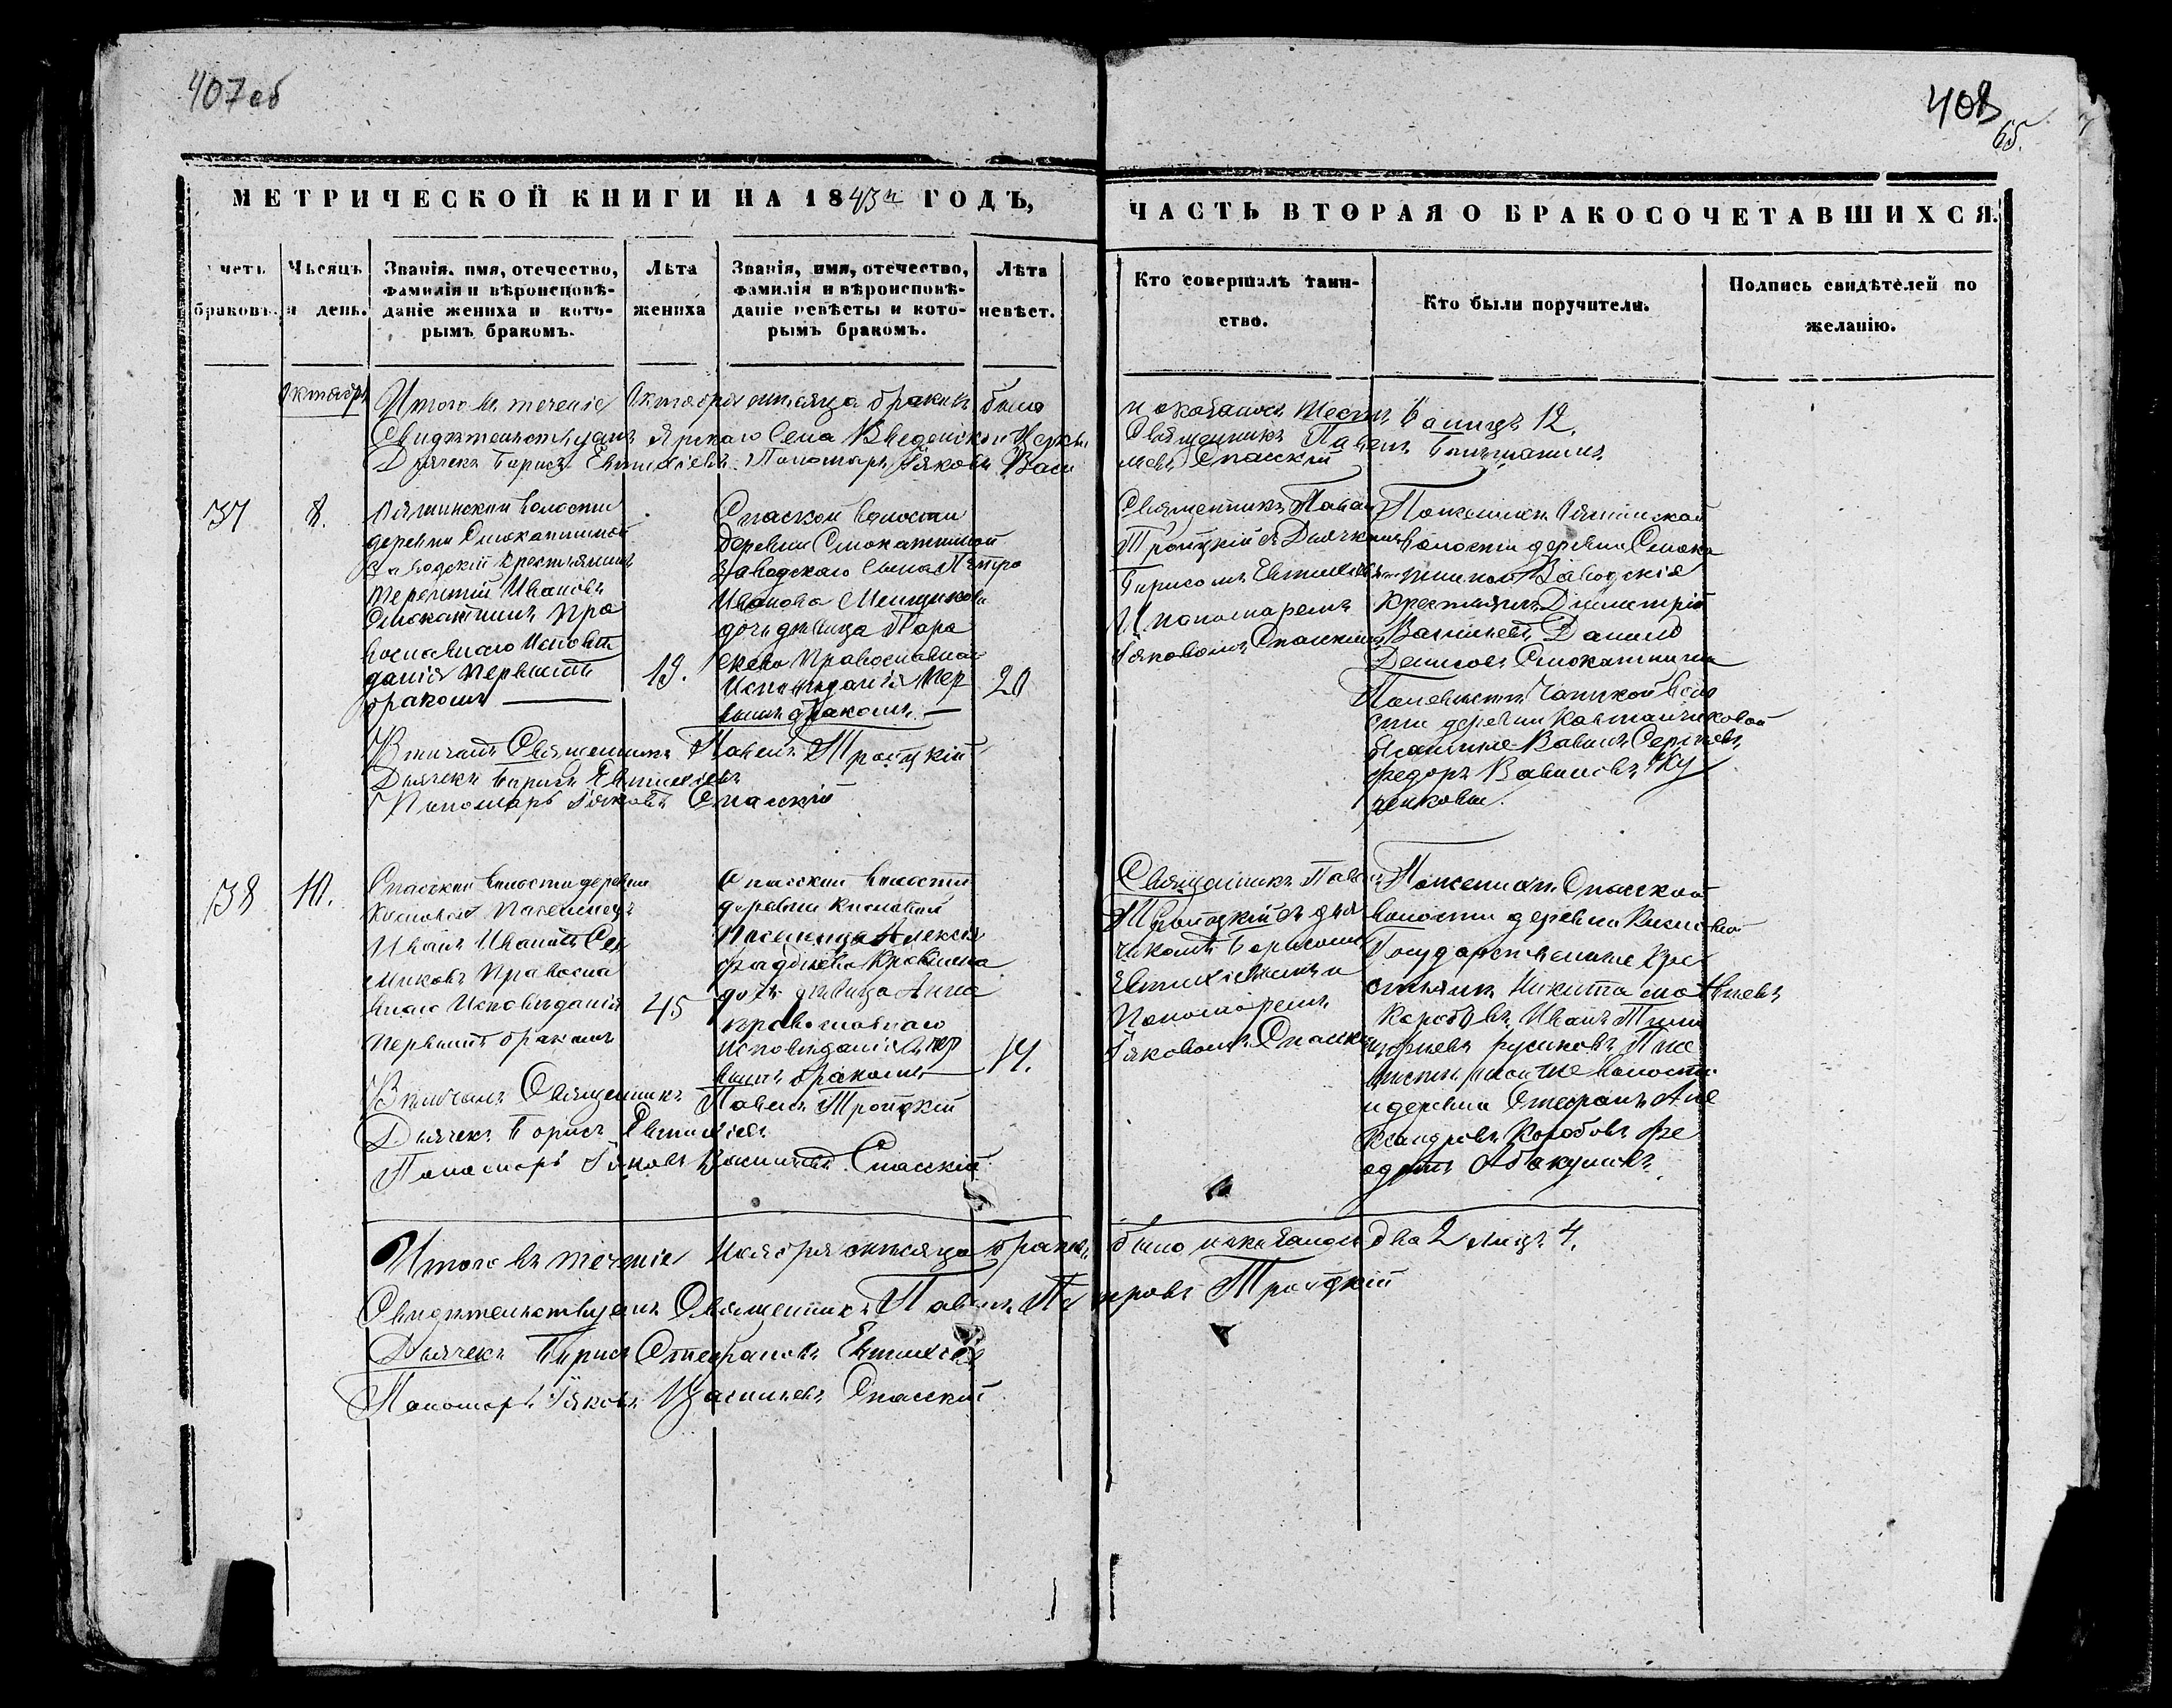 407 об
408
65.
МЕТРИЧЕСКОЙ КНИГИ НА 1843й ГОДЪ,
ЧАСТЬ ВТОРАЯ О БРАКОСОЧЕТАВШИХСЯ.
четъ браковъ.
Мѣсяцъ и день.
Званія, имя, отечество,
фамилія и вѣроисповѣ-
даніе жениха и кото-
рымъ бракомъ.
Лѣта
жениха
Званія, имя, отечество,
фамилія и вѣроисповѣ-
даніе невѣсты и кото-
рымъ бракомъ.
Лѣта
невѣст.
Кто совершалъ таин-
ство.
Кто были поручители.
Подпись свидѣтелей по
желанію.
Октябрь
Итого въ теченіе Октября мѣсяца браковъ было
и показаносъ шесть 6 а лицъ 12.
Свидѣтельствуемъ Ярскаго Села Введенской Церкви
Священникъ Павелъ
Дьячекъ Борисъ Евтихіевъ. Пономарь Іяковъ Васи
льевъ Спасскій
37
8.
волости
деревни Смокатиной
Заводскій крестьянинъ
Терентій Ивановъ
Смокатинъ Пра
вославнаго Исповѣ
данія первымъ
бракомъ
19.
Спаской волости
Деревни Смокатиной
Заводскаго сына Петра
Иванова
дочь дѣвица Пара
скева Православнаго
Исповѣданія пер
вымъ бракомъ
20
Священникъ Павелъ
Троицкій съ Дьячкомъ
Борисомъ Евтихіевымъ
И пономаремъ
Іяковомъ Спасскимъ
По женихѣ
волости деревни Смока
тиной Заводскіе
крестьяне Димитрій
Васильевъ, Данило
Денисовъ Смокатины
По невѣстѣ Чатской воло
сти деревни Кафтанчиковой
Вавилъ Сергѣевъ,
Федоръ Вавиловъ Ку
ченковы.
Вѣнчалъ Священникъ Павелъ Троицкій
Дьячекъ Борисъ Евтихіевъ
Пономарь Іяковъ Спасскій
38
10.
Спасской волости деревни
Кисловой Поселенецъ
Иванъ Ивановъ Се
миковъ Правосла
внаго Исповѣданія
первымъ бракомъ
45
Спасской волости
деревни Кисловой
Поселенца Алексѣя
Фадѣева
дочь дѣвица Анна
православнаго
исповѣданія пер
вымъ бракомъ
14.
Священникъ Павелъ
Троицкій съ дья
чкомъ Борисомъ
Евтихіевымъ и
Пономаремъ
Іяковомъ Спасскимъ
По женихѣ Спасской
волости деревни Кисловой
Государственные кре
стьяне Никита Матвѣевъ
Коробовъ, Иванъ Тимо
фѣевъ Русиновъ По не
вѣстѣ той же волости
и деревни Стефанъ Але
ксандровъ Коробовъ Фе
одотъ Абакумовъ.
Вѣнчалъ Священникъ Павелъ Троицкій
Дьячекъ Борисъ Евтихіевъ
Пономарь Іяковъ Васильевъ Спасскій
Итого въ теченіе Ноября мѣсяца браковъ было и показаносъ два 2 лицъ 4.
Свидѣтельствуемъ Священникъ Павелъ Петровъ Троицкій
Дьячекъ Борисъ Стефановъ Евтихіевъ
Пономарь Іяковъ Васильевъ Спасскій